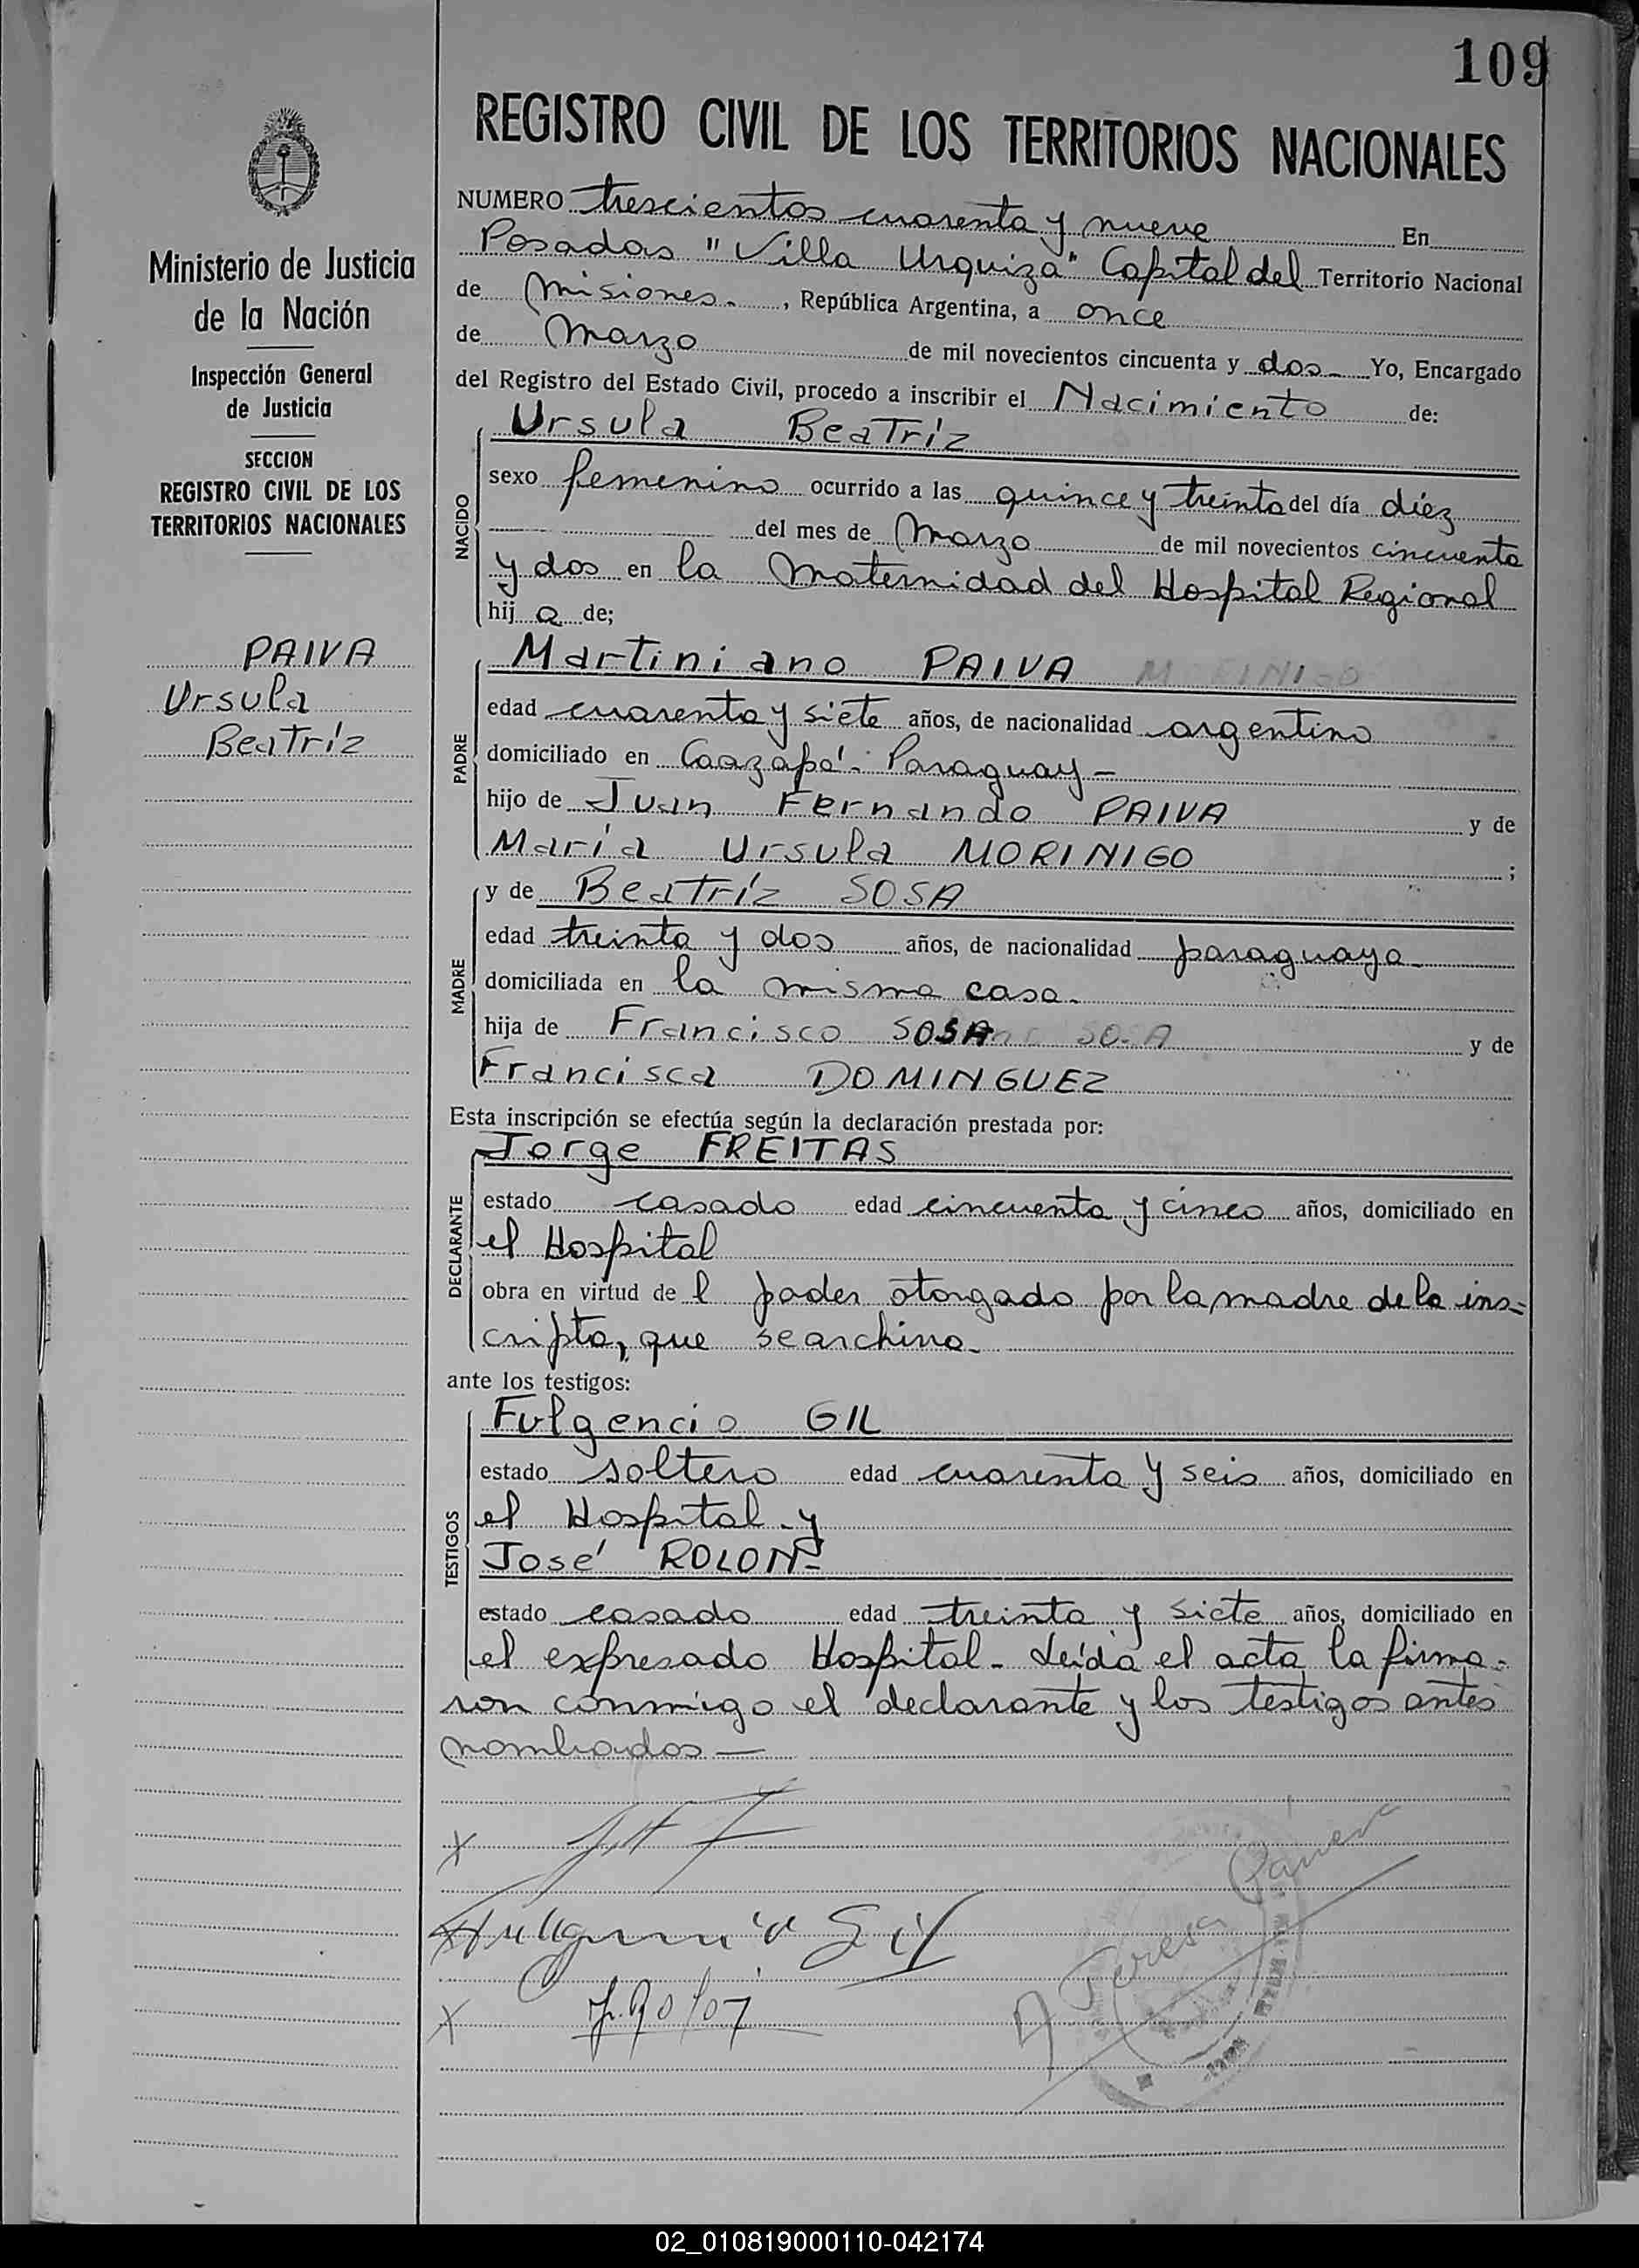 109
REGISTRO CIVIL DE LOS TERRITORIOS NACIONALES
Ministerio de Justicia
de la Nación
Inspección General
de Justicia
SECCION
REGISTRO CIVIL DE LOS
TERRITORIOS NACIONALES
PAIVA
Ursula
Beatríz
NUMERO trescientos cuarenta y nueve En
Posadas "Villa Urquiza" Capital del Territorio Nacional
de Misiones-, República Argentina, a once
de Marzo de mil novecientos cincuenta y dos- Yo, Encargado
del Registro del Estado Civil, procedo a inscribir el Nacimiento de:
Ursula Beatríz
NACIDO
sexo femenino ocurrido a las quince y treinta del día diéz
del mes de Marzo de mil novecientos cincuenta
y dos en la Maternidad del Hospital Regional
hija de;
Martiniano PAIVA
PADRE
edad cuarenta y siete años, de nacionalidad argentino
domiciliado en Caazapá- Paraguay-
hijo de Juan Fernando PAIVA y de
María Ursula MORINIGO ;
y de Beatríz SOSA
MADRE
edad treinta y dos años, de nacionalidad paraguaya
domiciliada en la misma casa-
hija de Francisco SOSA y de
Francisca DOMINGUEZ
Esta inscripción se efectúa según la declaración prestada por:
Jorge FREITAS
DECLARANTE
estado casado edad cincuenta y cinco años, domiciliado en
el Hospital
obra en virtud del poder otorgado por la madre de la ins-
cripta, que se archiva-
ante los testigos:
Fulgencio GIL
TESTIGOS
estado soltero edad cuarenta y seis años, domiciliado en
el Hospital y
José ROLON-
estado casado edad treinta y siete años, domiciliado en
el expresado Hospital- Leída el acta la firma-
ron conmigo el declarante y los testigos antes
nombrados-
x
x Fulgencio Gil
x
Teresa
02_010819000110-042174